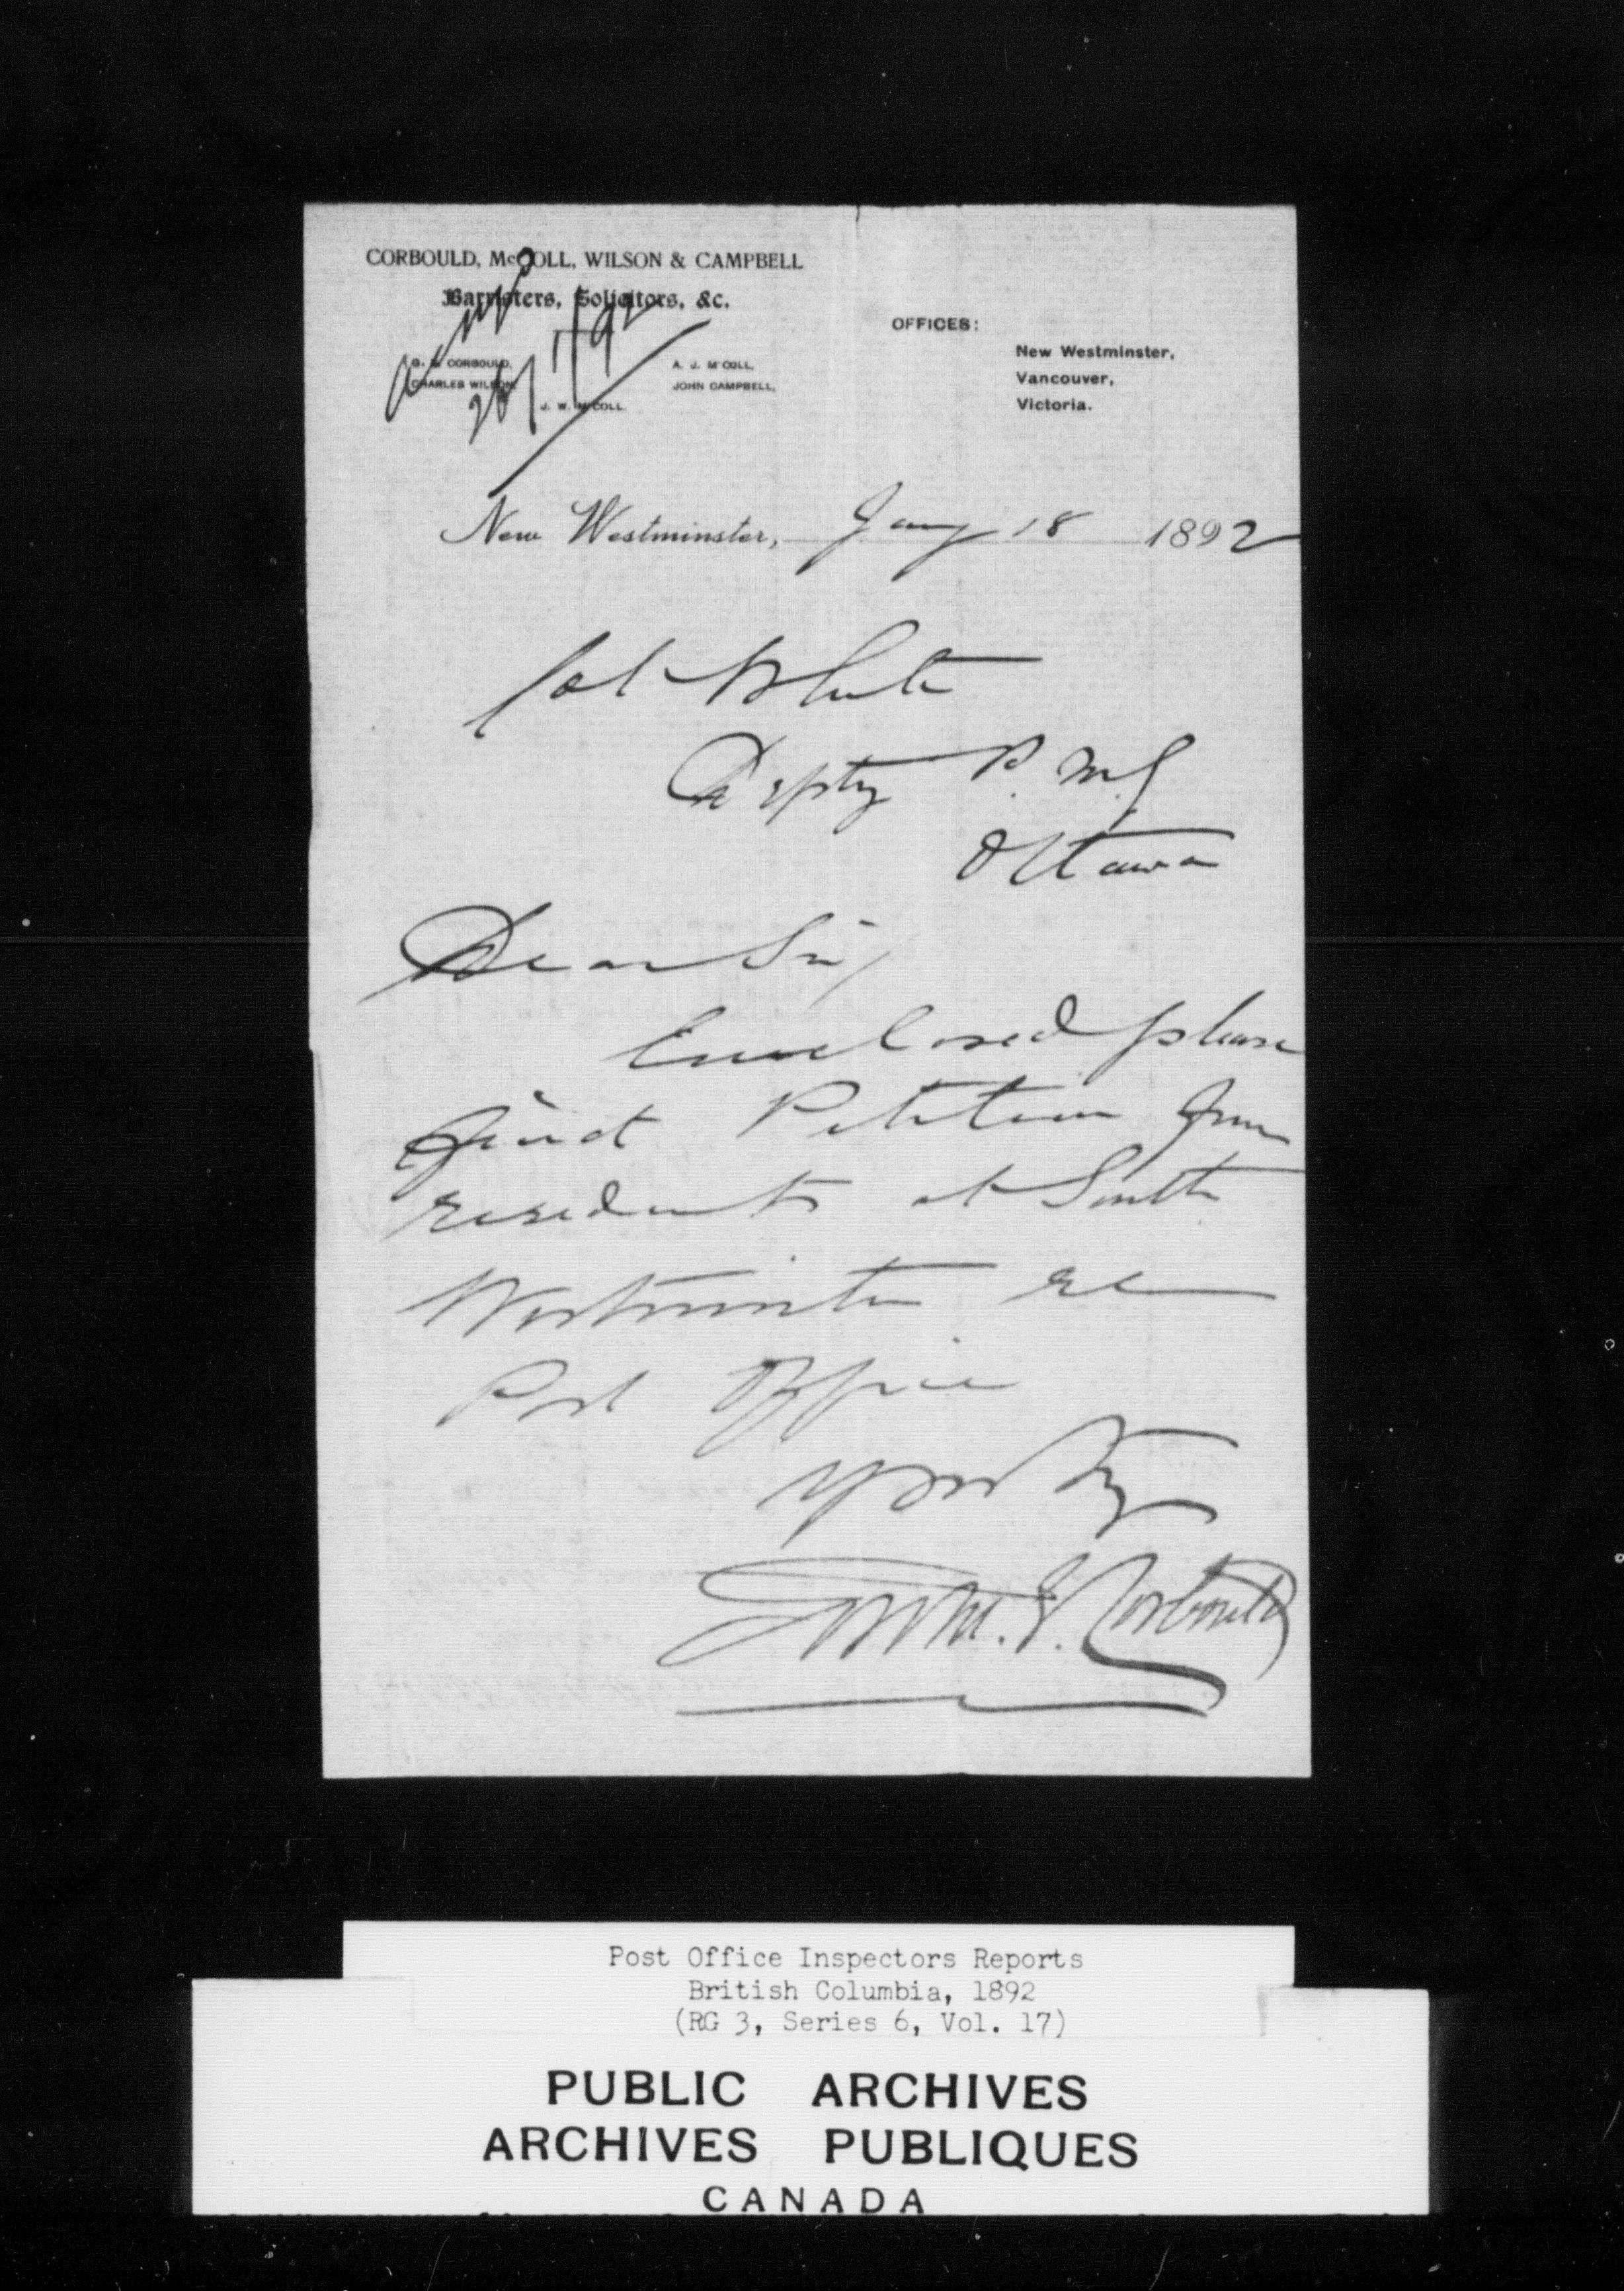 CORBOULD, McCOLL, WILSON & CAMPBELL
Barristers, Solicitors, &c.
G. E. CORBOULD,
CHARLES WILSON,
A. J. McCOLL,
JOHN CAMPBELL,
J. W. McCOLL.
OFFICES:
New Westminster,
Vancouver,
Victoria.
26/1/92
New Westminster, Jany 18 1892
Col White
Depty P. M. G
Ottawa
Dear Sir,
Enclosed please
find Petition from
residents at South
Westminster re
Post Office
Yours try
Gordon E. Corbould
Post Office Inspectors Reports
British Columbia, 1892
(RG 3, Series 6, Vol. 17)
PUBLIC ARCHIVES
ARCHIVES PUBLIQUES
CANADA